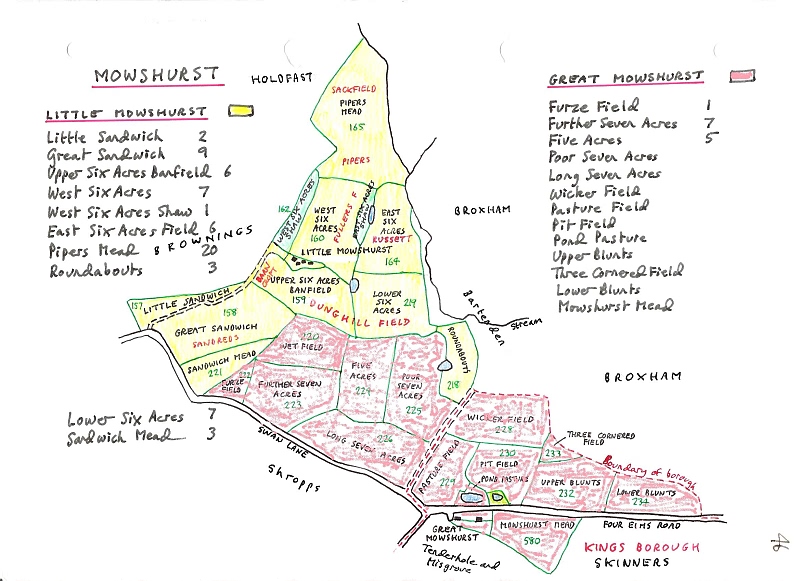 MOWSHURST
HOLDFAST
LITTLE MOWSHURST
Little Sandwich 2
Great Sandwich 9
Upper Six Acres Banfield 6
West Six Acres 7
West Six Acres Shaw 1
East Six Acres Field 6
Pipers Mead 20
Roundabouts 3
BROWNINGS
Lower Six Acres 7
Sandwich Mead 3
GREAT MOWSHURST
Furze Field 1
Further Seven Acres 7
Five Acres 5
Poor Seven Acres
Long Seven Acres
Wicker Field
Pasture Field
Pit Field
Pond Pasture
Upper Blunts
Three Cornered Field
Lower Blunts
Mowshurst Mead
SACKFIELD
PIPERS
MEAD
165
PIPERS
162
WEST SIX ACRES
SHAW
WEST
SIX
ACRES
160
FULLERS F
EAST SIX ACRES
SHAW
EAST
SIX
ACRES
RUSSETT
164
BROXHAM
LITTLE MOWSHURST
BARN
CROFT
UPPER SIX ACRES
BANFIELD
159
DUNGHILL FIELD
LOWER
SIX
ACRES
219
157
LITTLE SANDWICH
158
GREAT SANDWICH
SANDREDS
SANDWICH MEAD
221
Bartenden
Stream
ROUNDABOUTS
218
BROXHAM
220
WET FIELD
222
FURZE
FIELD
FURTHER SEVEN
ACRES
223
FIVE
ACRES
224
POOR
SEVEN
ACRES
225
LONG SEVEN ACRES
226
SWAN LANE
Shropps
WICKER FIELD
228
PASTURE FIELD
229
230
PIT FIELD
POND PASTURE
THREE CORNERED
FIELD
233
Boundary of borough
UPPER BLUNTS
232
LOWER BLUNTS
234
GREAT
MOWSHURST
MOWSHURST MEAD
580
FOUR ELMS ROAD
Tenderhole and
Misgrove
KINGS BOROUGH
SKINNERS
46